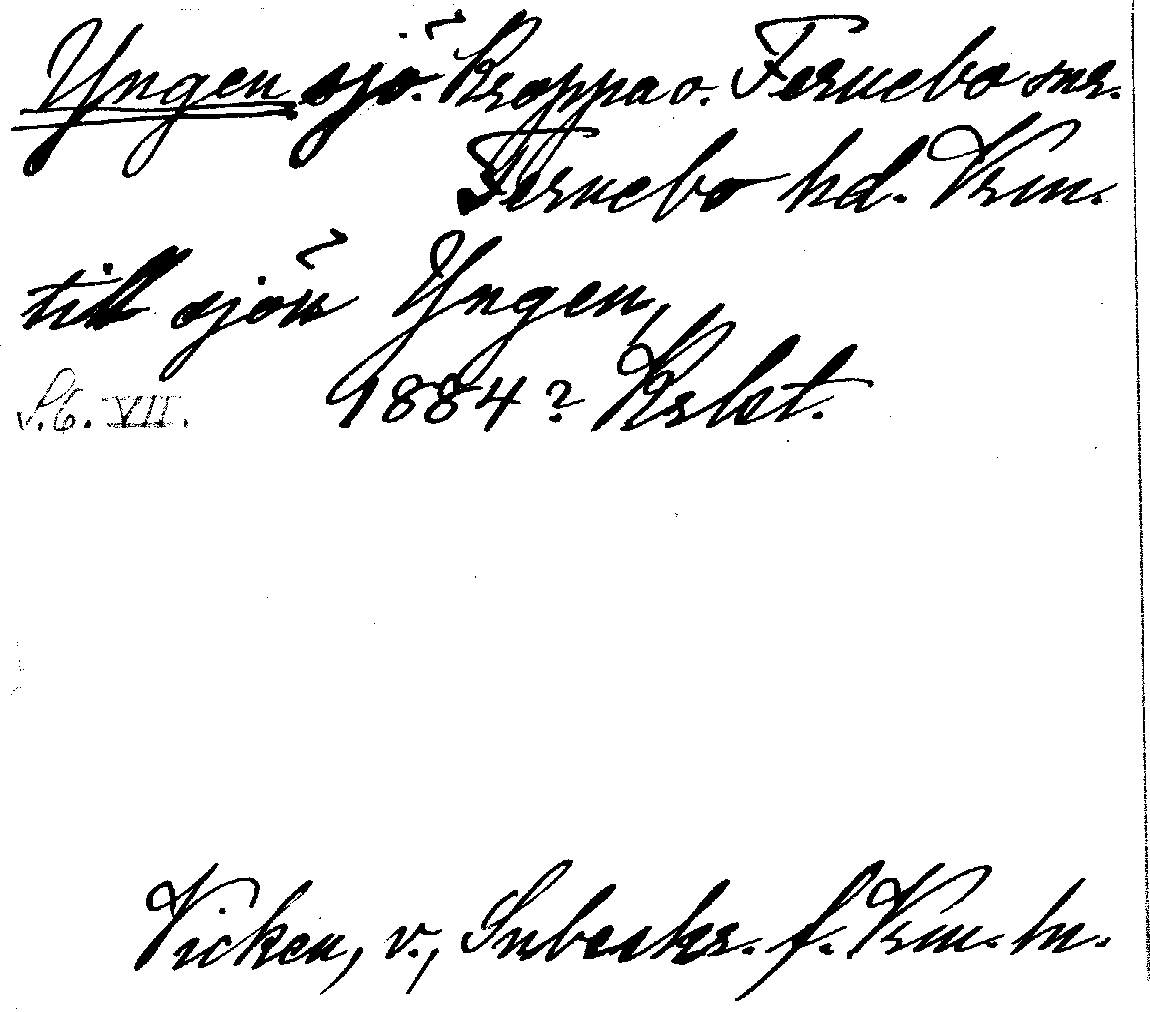 Yngen sjö. Kroppa o. Fernebo snr.
Fernebo hd. Vrm.
till sjön Yngen,
S.6. VII. 1884? Krlst.
Vicken, v., Inberkr. f. Vrm. ln.